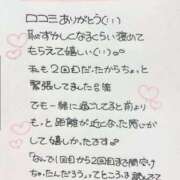 口コミありがとう(´˘`)
恥ずかしくなるくらい褒めて
もらえて嬉しい(´˘`)♡
私も2回目だったからちょっと
緊張してました(笑)
でも一緒に過ごしてると前より
もっと距離が近くなった感じが
して嬉しかったです♡
「なんで1回目から2回目まで間空け
ちゃったんだろう」ってところは